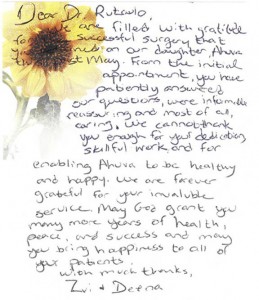 Dear Dr. Rutaolo,
We are filled with gratitude
for successful surgery that
on our daughter, Ahuva
this past May. From the initial
appointment, you have
patiently answered
our questions, were informative
reassuring and most of all,
caring. We cannot thank
you enough for your dedication,
skillful work and for
enabling Ahuva to be healthy
and happy. We are forever
grateful for your invaluable
service. May God grant you
many more years of health,
peace, and success and may
you bring happiness to all of
your patients.
With much thanks,
Zvi & Deena